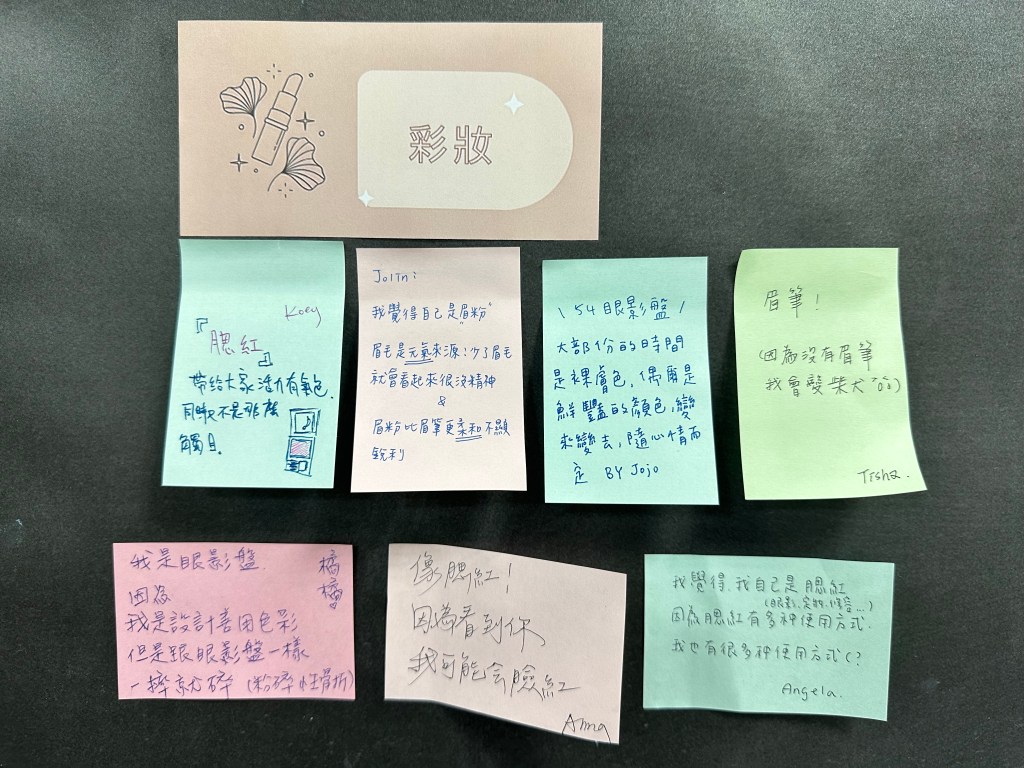 彩妝
Koey
『腮紅』
帶給大家活力有氣色,
同時又不是那麼
觸目
Jolin:
我覺得自己是"眉粉"
眉毛是元氣來源:少了眉毛
就會看起來很沒精神
&
眉粉比眉筆更柔和不顯
銳利
\ 54眼影盤 /
大部份的時間
是裸膚色,偶爾是
鮮豔的顏色,變
來變去,隨心情而
定 BY Jojo
眉筆!
(因為沒有眉筆
我會變柴犬)
Tisha.
我是眼影盤.
橘橘
因為
我是設計善用色彩
但是跟眼影盤一樣
一摔就碎 (粉碎性骨折)
像腮紅!
因為看到你
我可能会臉紅
Anna
我覺得,我自己是腮紅
因為腮紅有多种使用方式.
我也有很多种使用方式(?
Angela.